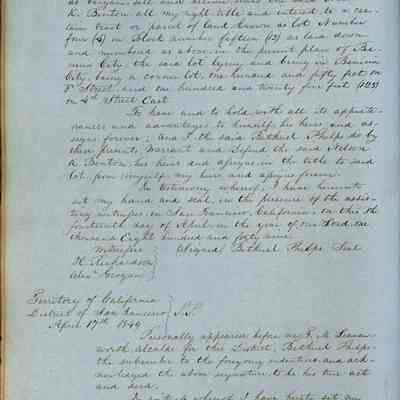 as bargain, sell and
K. Benton all my right title and interest to a cer-
tain tract or parcel of land known as Lot Number
four (4) in Block number fifteen (15) as laid down
and numbered as above in the present plan of Be-
nicia City, the said lot lying and being in Benicia
City, being a corner lot, one hundred and fifty feet on
St Street, and one hundred and twenty five feet (125)
on 4th Street East
To have and to hold with all its appurte-
nances and advantages to himself his heirs and as-
signs forever; And I the said Bethuel Phelps do by
these presents, Warrant and Defend the said Nelson
K. Benton, his heirs and assigns, in the title to said
lot, from myself, my heirs and assigns forever.
In testimony whereof, I have hereunto
set my hand and seal, in the presence of the assis-
ting witnesses in San Francisco, California, on this the
fourteenth day of April in the year of our Lord, one
thousand Eight hundred and forty nine
Witnesses } Signed, Bethuel Phelps Seal
H. Richardson
Alexr Grogan
Territory of California
District of San Francisco } S.S.
April 17th 1849
Personally appeared before me, T. M. Leaven-
worth Alcalde for this District, Bethuel Phelps
the subscriber to the foregoing indenture, and ack-
nowledged the above signature to be his true act
and deed.
In witness whereof I have hereto set my